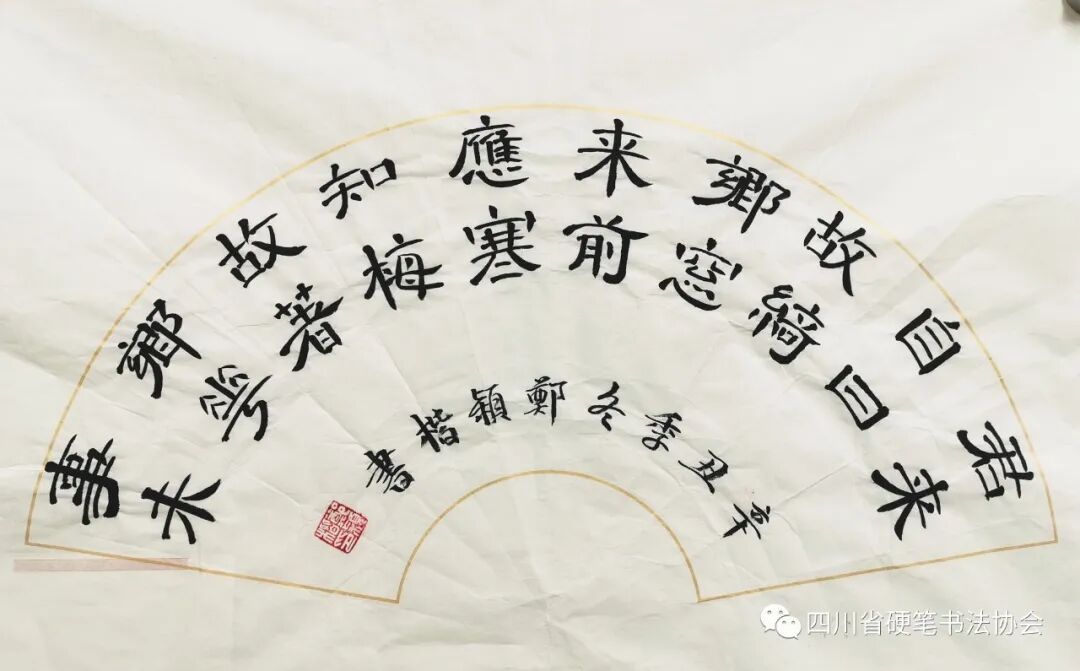 君自故鄉来應知故鄉事
来日綺窓前寒梅著花未
辛丑季冬鄭穎楷書
四川省硬笔书法协会